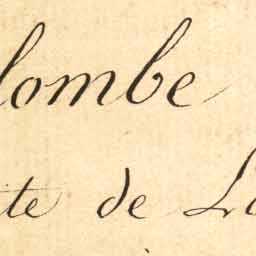 lombe
te de L